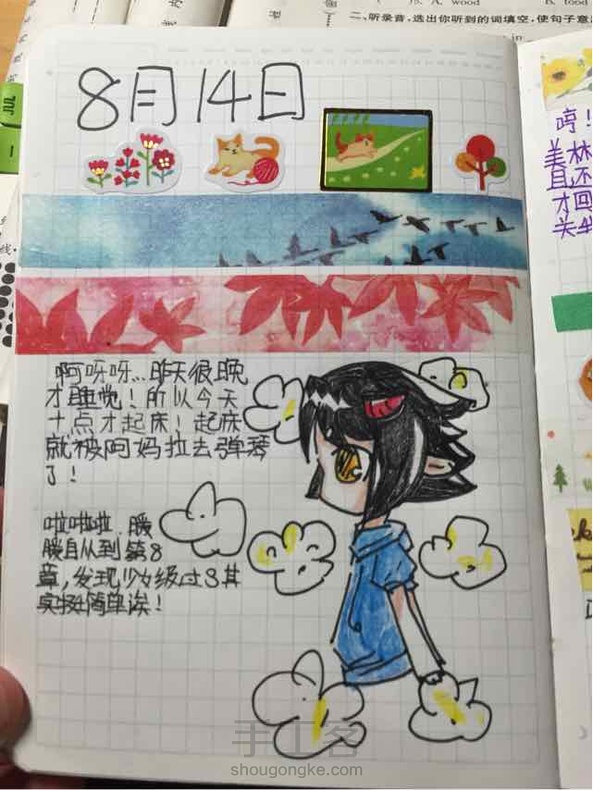 A. wood
B. food
二、听录音,选出你听到的词填空,使句子意
JUL
8月14日
啊呀呀...昨天很晚
才睡觉!所以今天
十点才起床!起床
就被阿妈拉去弹琴
了!
啦啦啦、暖
暖自从到第8
章,发现少女级过S其
实挺简单诶!
哼!
美林
且还
才回
关
手工客
shougongke.com